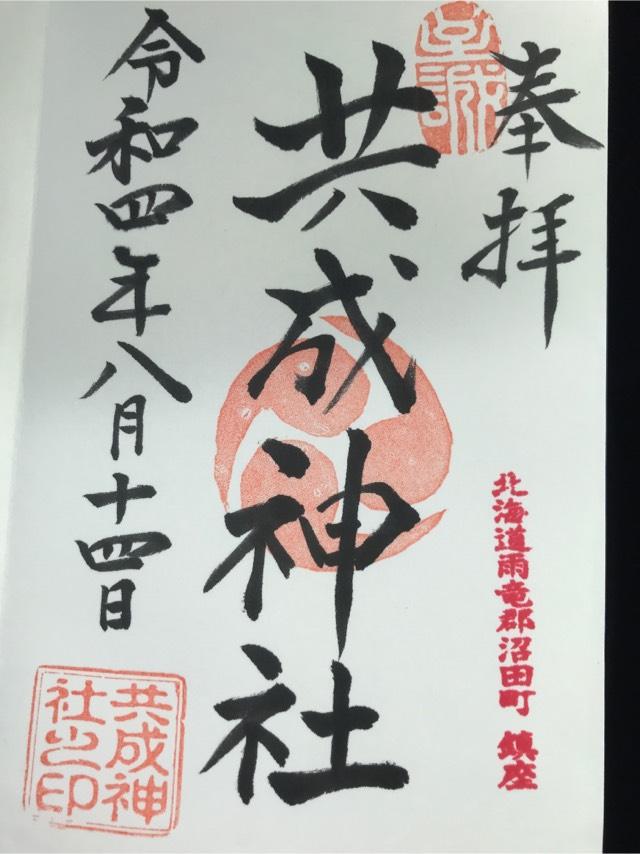 奉拝
至誠
北海道雨竜郡沼田町 鎮座
共成神社
令和四年八月十四日
共成神
社之印